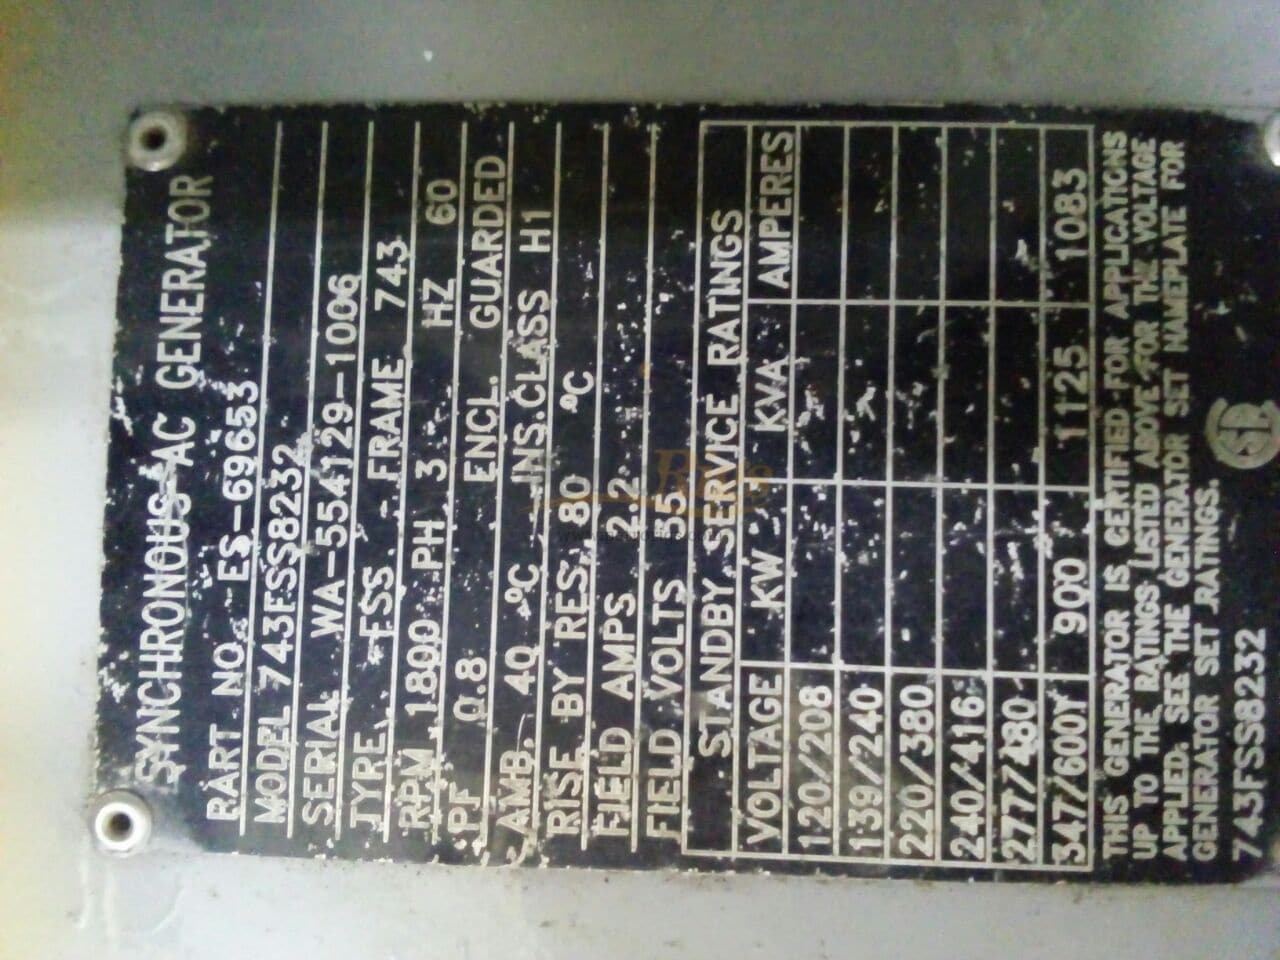 SYNCHRONOUS AC GENERATOR
PART NO. ES-69653
MODEL 743FSS8232
SERIAL WA-554129-1006
TYPE FSS FRAME 743
RPM 1800 PH 3 HZ 60
PF 0.8 ENCL. GUARDED
AMB. 40 °C INS.CLASS H1
RISE BY RES. 80 °C
FIELD AMPS 2.2
FIELD VOLTS 55
STANDBY SERVICE RATINGS
VOLTAGE KW KVA AMPERES
120/208
139/240
220/380
240/416
277/480
347/600Y 900 1125 1083
THIS GENERATOR IS CERTIFIED FOR APPLICATIONS
UP TO THE RATINGS LISTED ABOVE FOR THE VOLTAGE
APPLIED. SEE THE GENERATOR SET NAMEPLATE FOR
GENERATOR SET RATINGS.
743FSS8232